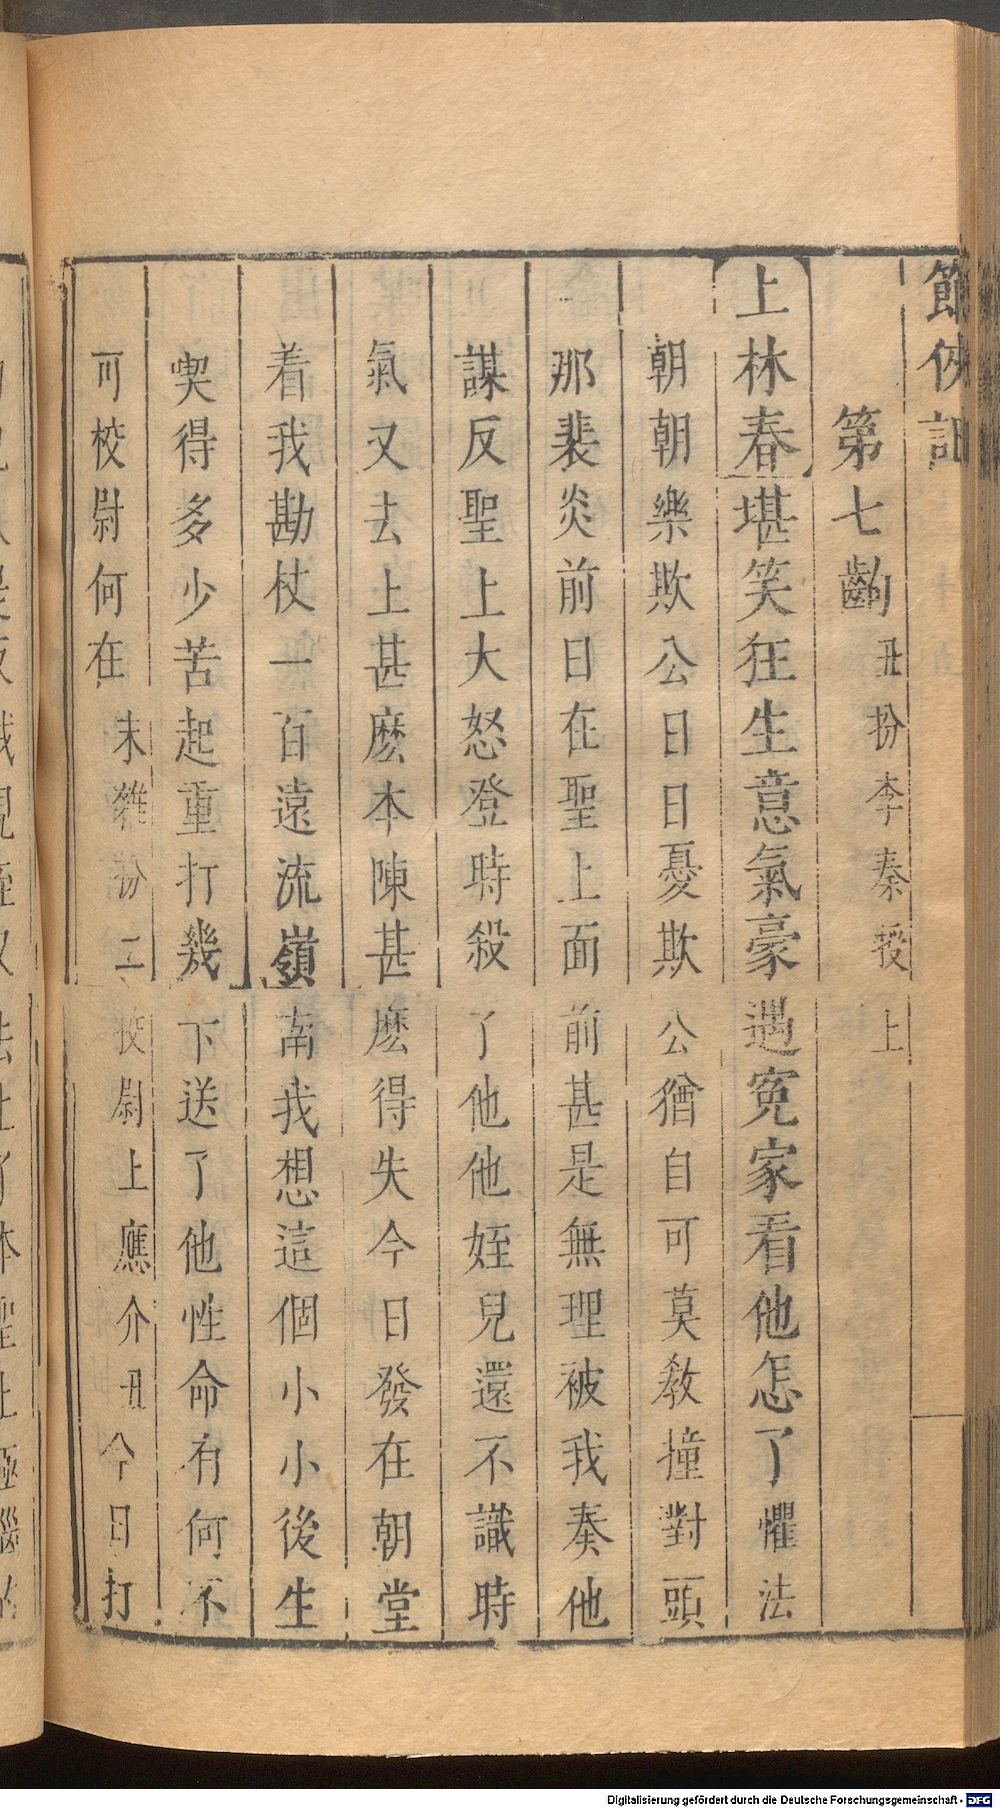 節俠記
第七齣 丑扮李秦授上
上林春堪笑狂生意氣豪遇寃家看他怎了懼法
朝朝樂欺公日日憂欺公猶自可莫教撞對頭
那裴炎前日在聖上面前甚是無理被我奏他
謀反聖上大怒登時殺了他他姪兒還不識時
氣又去上甚麽本陳甚麽得失今日發在朝堂
着我勘杖一百遠流嶺南我想這個小小後生
喫得多少苦起重打幾下送了他性命有何不
可校尉何在末雜扮二校尉上應介丑今日打
Digitalisierung gefördert durch die Deutsche Forschungsgemeinschaft - DFG